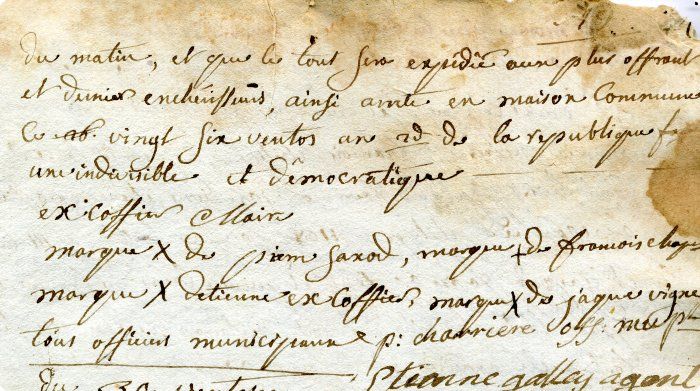 du matin, et que le tout sera expédié aux plus offrant
et dernier enchérisseurs, ainsi arreté en maison Commune
Ce vingt six ventos an 2d de la republique
une indivisible et démocratique
excoffier Maire
marque X de pierre Sarod, marque + de francois
marque X detienne excoffier, marque X de jaque vigne
tous officiers municipaux p: charriere off: mup.al
Etienne gallay agent